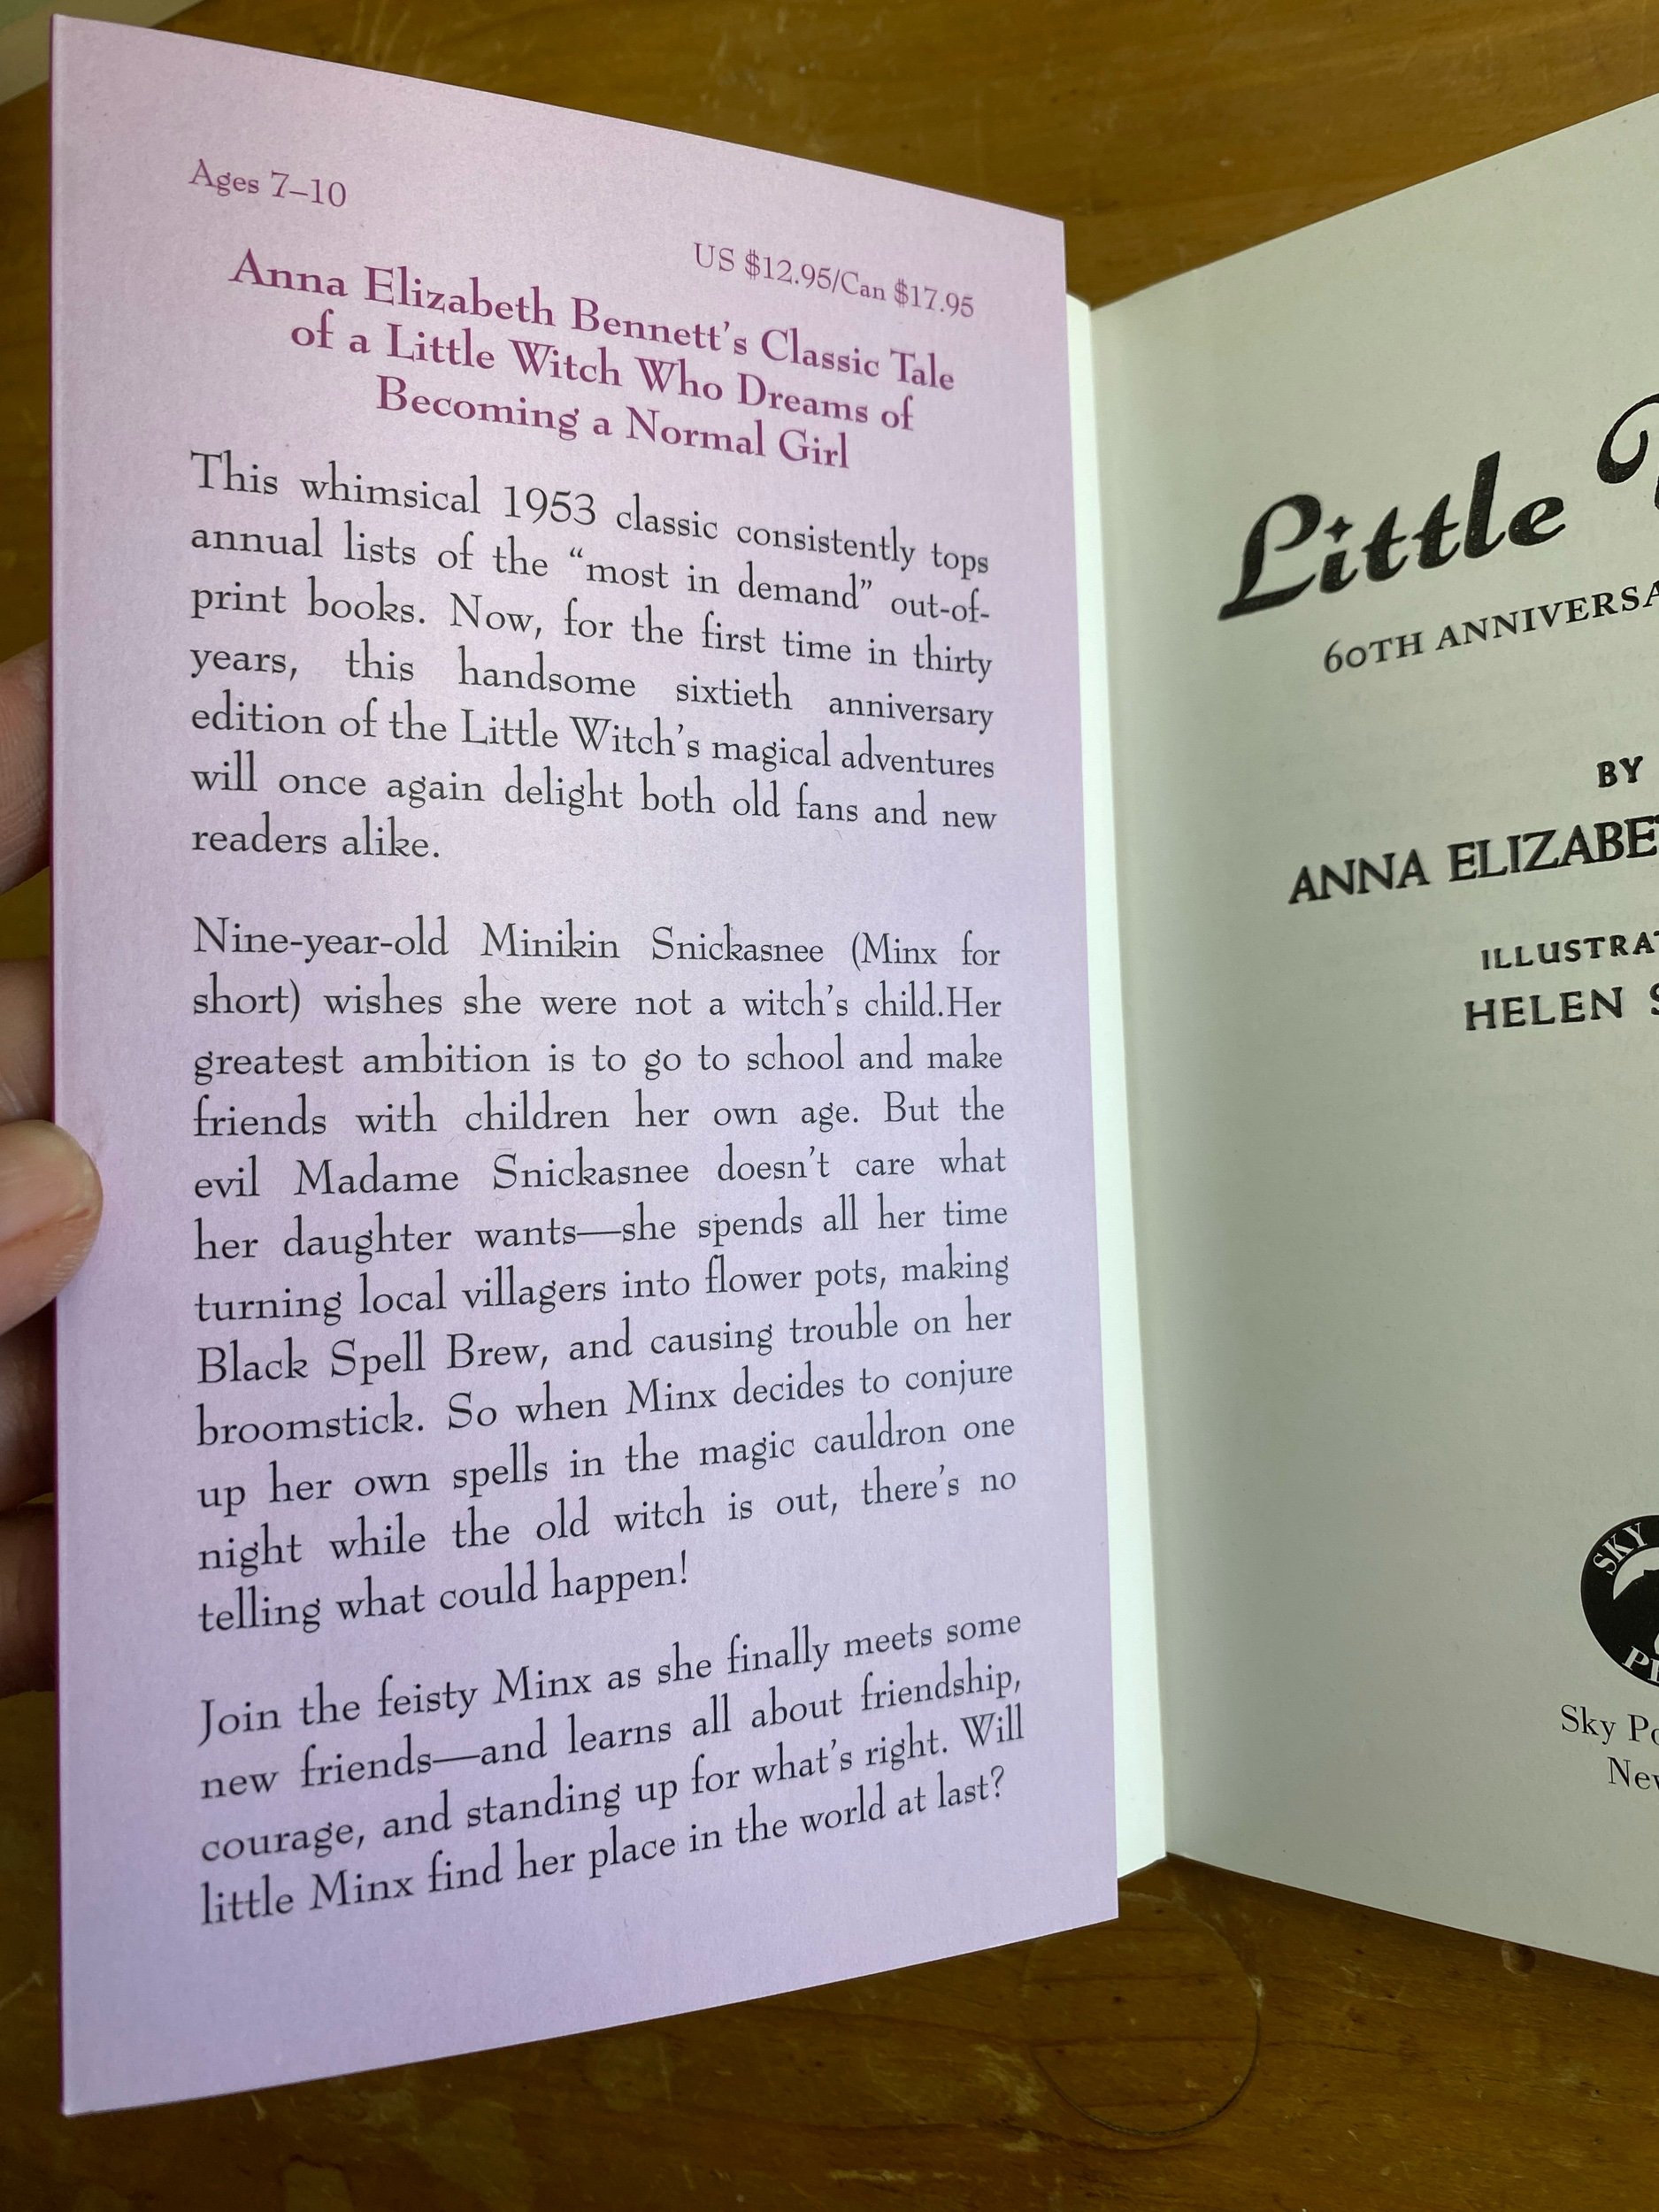 Ages 7–10
US $12.95/Can $17.95
Anna Elizabeth Bennett's Classic Tale
of a Little Witch Who Dreams of
Becoming a Normal Girl
This whimsical 1953 classic consistently tops
annual lists of the “most in demand” out-of-
print books. Now, for the first time in thirty
years, this handsome sixtieth anniversary
edition of the Little Witch's magical adventures
will once again delight both old fans and new
readers alike.
Nine-year-old Minikin Snickasnee (Minx for
short) wishes she were not a witch's child.Her
greatest ambition is to go to school and make
friends with children her own age. But the
evil Madame Snickasnee doesn't care what
her daughter wants—she spends all her time
turning local villagers into flower pots, making
Black Spell Brew, and causing trouble on her
broomstick. So when Minx decides to conjure
up her own spells in the magic cauldron one
night while the old witch is out, there's no
telling what could happen!
Join the feisty Minx as she finally meets some
new friends—and learns all about friendship,
courage, and standing up for what's right. Will
little Minx find her place in the world at last?
Little
60TH
BY
ANNA
HELEN
SKY
Sky